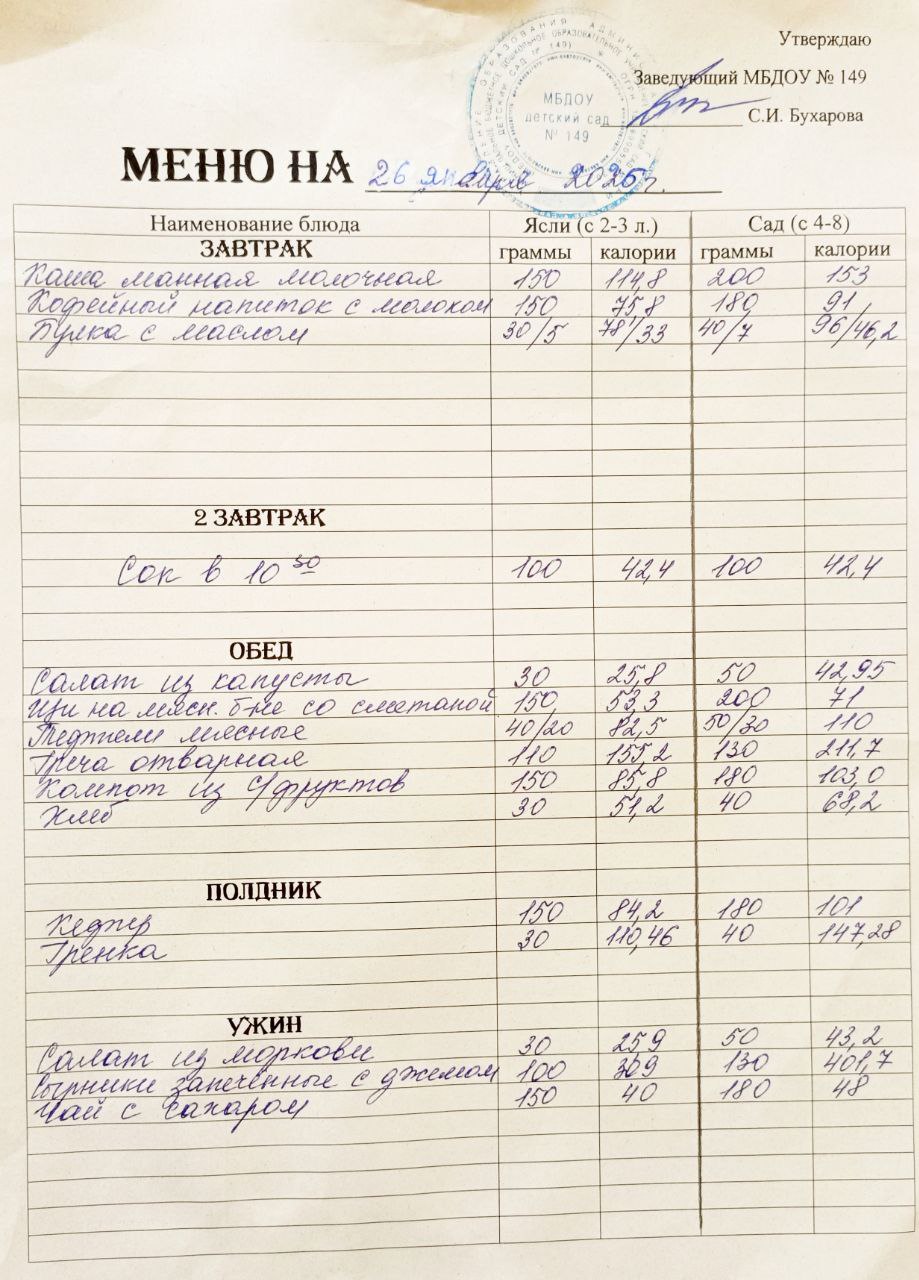 Утверждаю
Заведующий МБДОУ № 149
С.И. Бухарова
МБДОУ
детский сад
№ 149
МЕНЮ НА 26 января 2026 г.
Наименование блюда Ясли (с 2-3 л.) Сад (с 4-8)
ЗАВТРАК граммы калории граммы калории
Каша манная молочная 150 114,8 200 153
Кофейный напиток с молоком 150 75,8 180 91
Булка с маслом 30/5 78/33 40/7 96/46,2
2 ЗАВТРАК
Сок в 10 30 100 42,4 100 42,4
ОБЕД
Салат из капусты 30 25,8 50 42,95
Щи на мясн. б-не со сметаной 150 53,3 200 71
Тефтели мясные 40/20 82,5 50/30 110
Греча отварная 110 155,2 130 211,7
Компот из с/фруктов 150 85,8 180 103,0
Хлеб 30 51,2 40 68,2
ПОЛДНИК
Кефир 150 84,2 180 101
Гренка 30 110,46 40 147,28
УЖИН
Салат из моркови 30 25,9 50 43,2
Сырники запечённые с джемом 100 309 130 401,7
Чай с сахаром 150 40 180 48